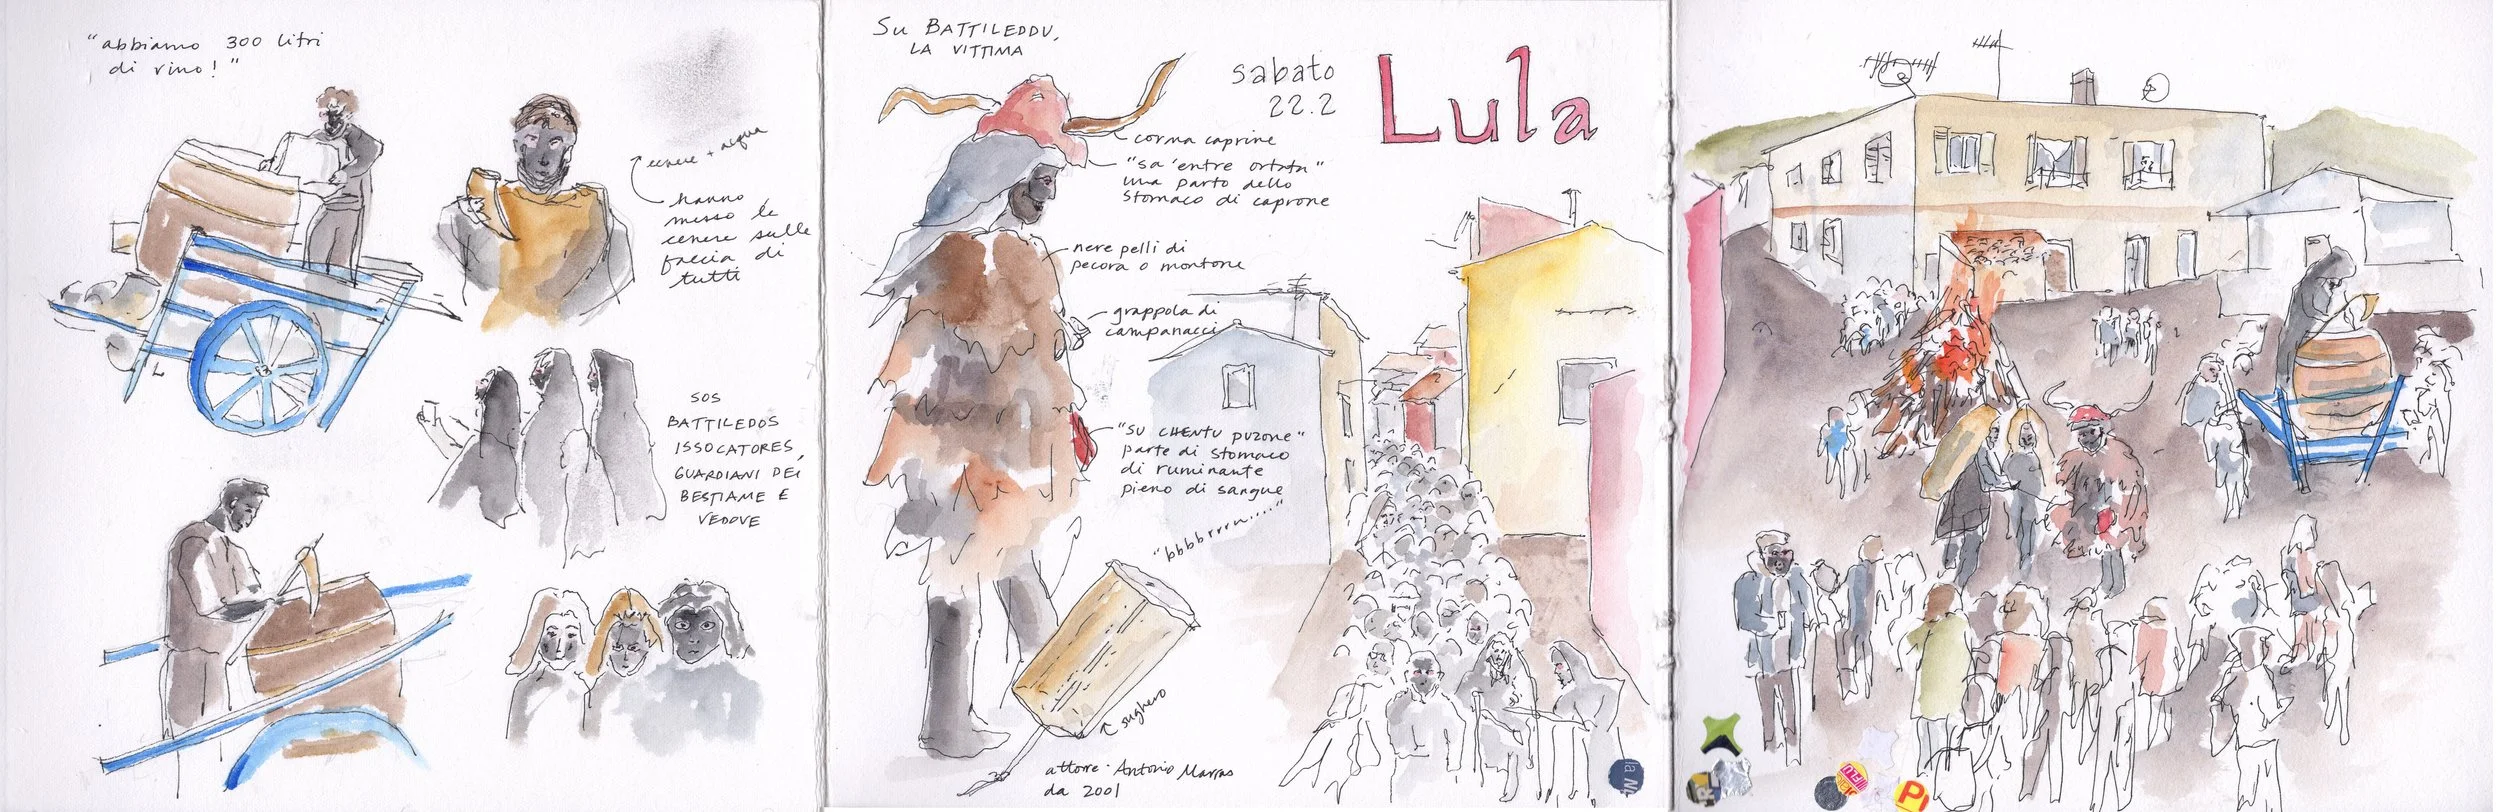 "abbiamo 300 litri
di vino!"
cenere + acqua
hanno
messo le
cenere sulle
faccia di
tutti
SOS
BATTILEDOS
ISSOCATORES,
GUARDIANI DEL
BESTIAME E
VEDOVE
SU BATTILEDDU,
LA VITTIMA
sabato
22.2
Lula
corna caprine
"sa 'entre ortata"
una parto dello
stomaco di caprone
nere pelli di
pecora o montone
grappola di
campanacci
"SU CHENTU PUZONE"
parte di stomaco
di ruminante
pieno di sangue
"bbbbrrrn....."
sughero
attore: Antonio Marras
da 2001